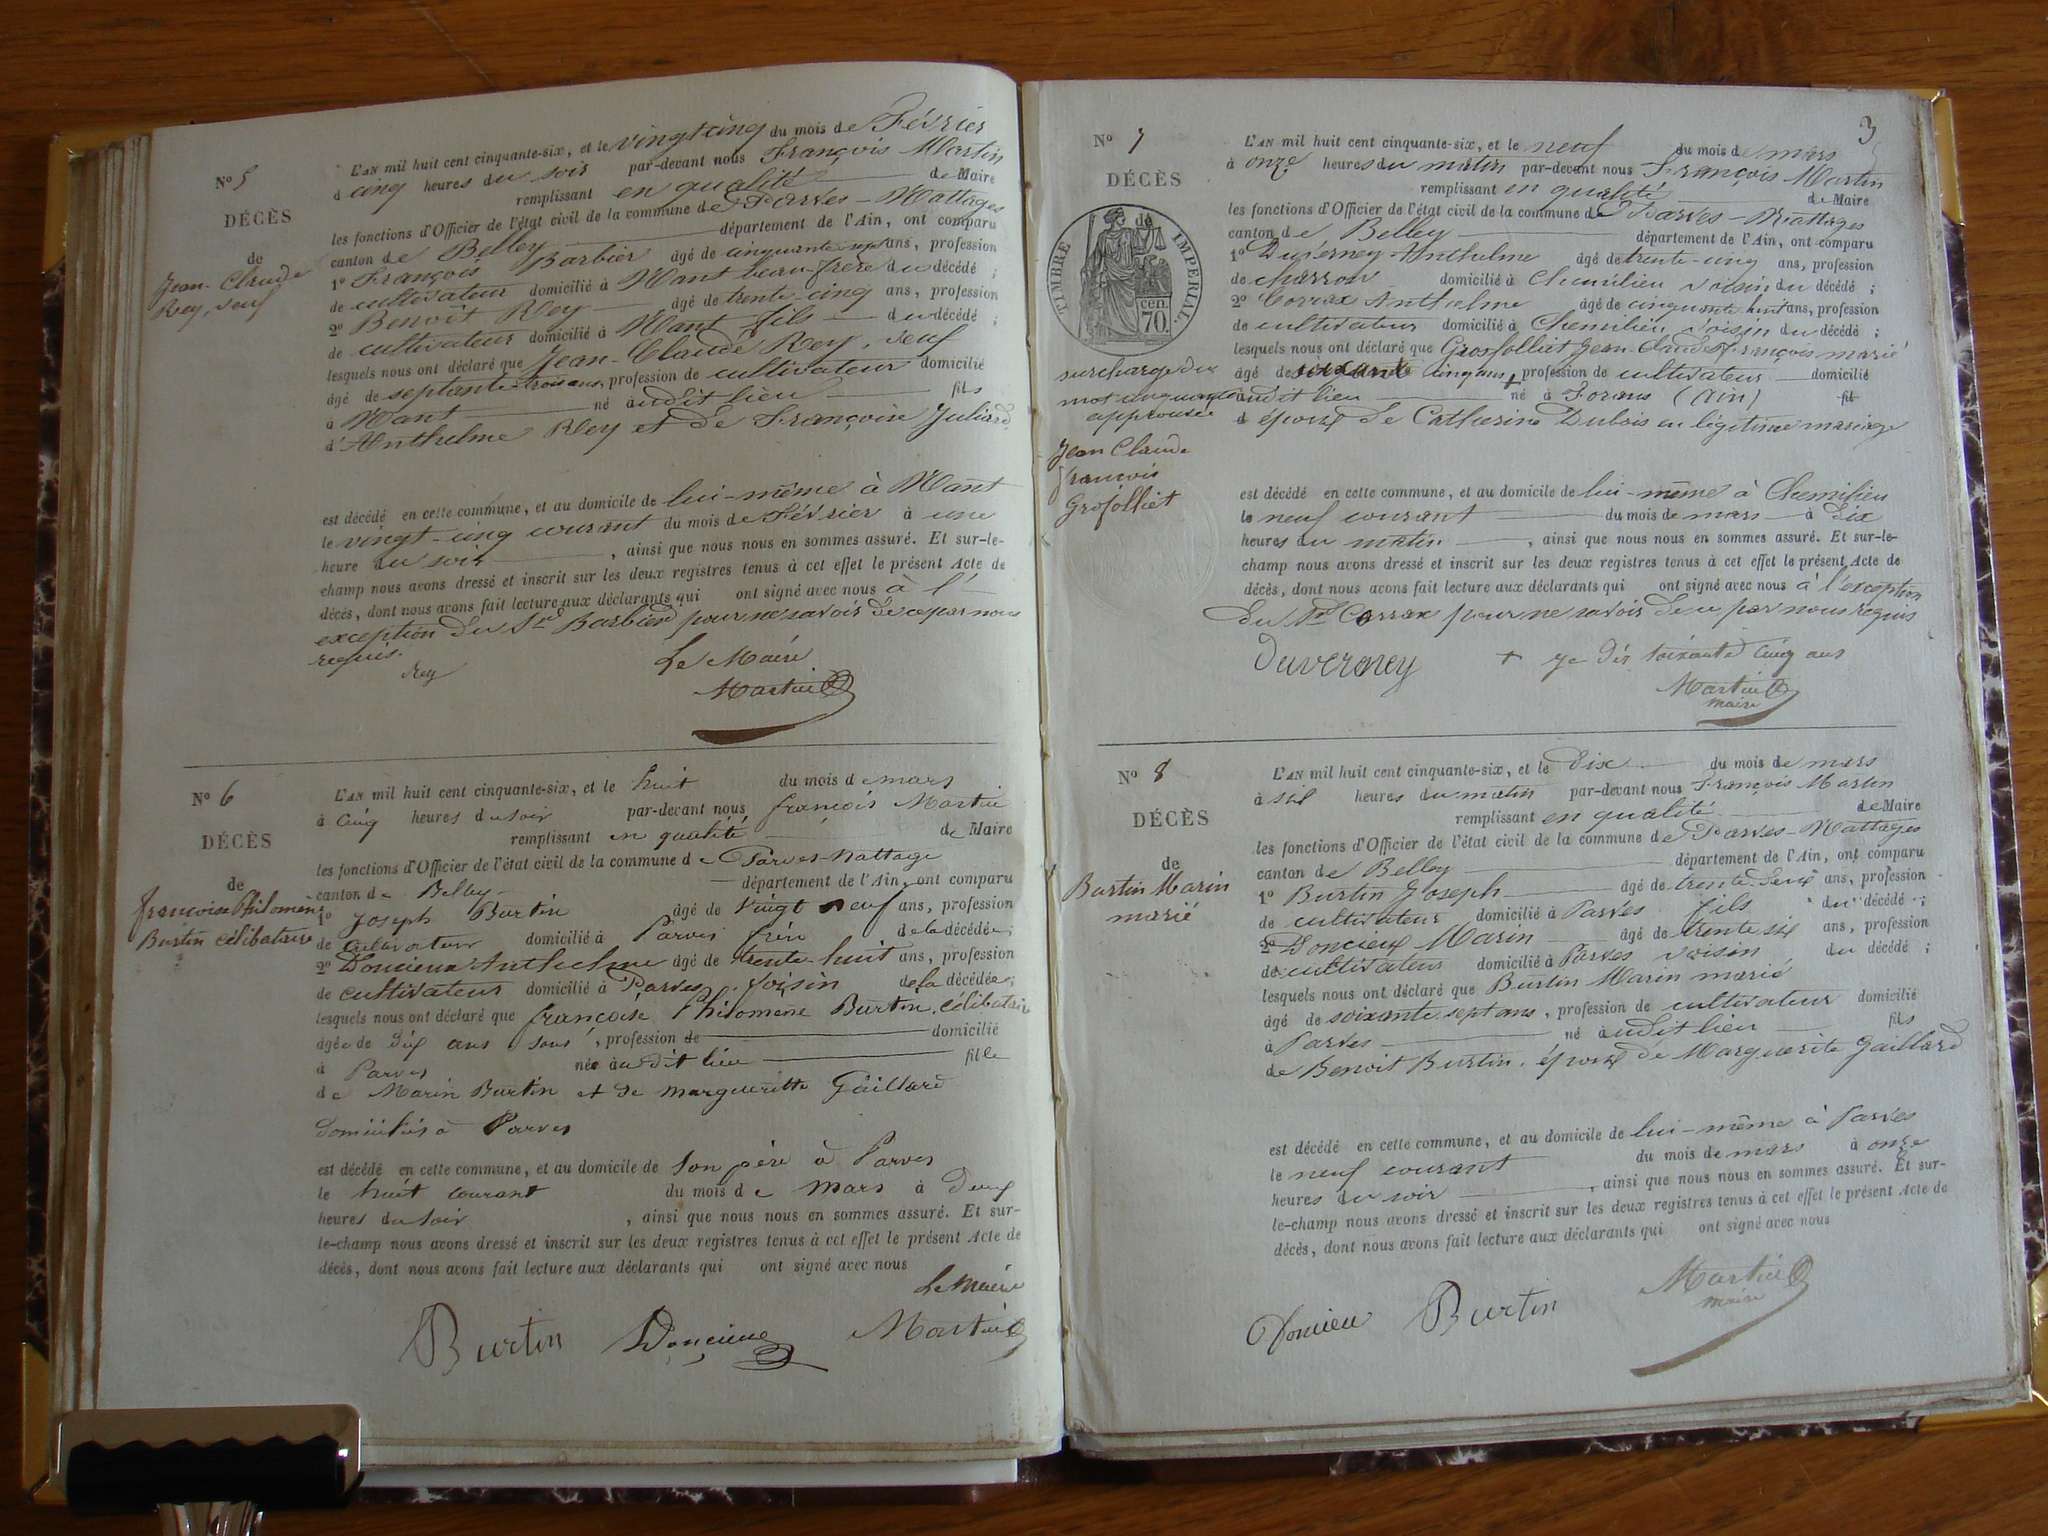 N° 5
DÉCÈS
de
Jean-Claude
Rey, veuf
L'AN mil huit cent cinquante-six, et le vingt cinq du mois de Février
à cinq heures du soir par-devant nous François Martin
remplissant en qualité de Maire
les fonctions d'Officier de l'état civil de la commune de Parves-Nattages
canton de Belley département de l'Ain, ont comparu
1° François Barbier âgé de cinquante sept ans, profession
de cultivateur domicilié à Nant beau-frère du décédé ;
2° Benoit Rey âgé de trente-cinq ans, profession
de cultivateur domicilié à Nant fils du décédé ;
lesquels nous ont déclaré que Jean-Claude Rey, veuf
âgé de septante-trois ans, profession de cultivateur domicilié
à Nant né audit lieu fils
d'Anthelme Rey et de Françoise Juliard
est décédé en cette commune, et au domicile de lui-même à Nant
le vingt-cinq courant du mois de Février à une
heure du soir , ainsi que nous nous en sommes assuré. Et sur-le-
champ nous avons dressé et inscrit sur les deux registres tenus à cet effet le présent Acte de
décès, dont nous avons fait lecture aux déclarants qui ont signé avec nous à l'
exception du Sr Barbier pour ne savoir de ce par nous
requis.
Rey
Le Maire
Martin
N° 6
DÉCÈS
de
françoise Philomène
Burtin célibataire
L'AN mil huit cent cinquante-six, et le huit du mois de mars
à cinq heures du soir par-devant nous françois Martin
remplissant en qualité de Maire
les fonctions d'Officier de l'état civil de la commune de Parves-Nattage
canton de Belley département de l'Ain, ont comparu
1° Joseph Burtin âgé de vingt neuf ans, profession
de cultivateur domicilié à Parves frère de la décédée ;
2° Doncieux Anthelme âgé de trente-huit ans, profession
de cultivateur domicilié à Parves, voisin de la décédée ;
lesquels nous ont déclaré que françoise Philomène Burtin, célibataire
âgée de dix ans, profession de domicilié
à Parves née audit lieu fille
de Marin Burtin et de margueritte Gaillard
domiciliés à Parves
est décédé en cette commune, et au domicile de son père à Parves
le huit courant du mois de mars à deux
heures du soir , ainsi que nous nous en sommes assuré. Et sur-
le-champ nous avons dressé et inscrit sur les deux registres tenus à cet effet le présent Acte de
décès, dont nous avons fait lecture aux déclarants qui ont signé avec nous
Le Maire
Burtin Doncieux Martin
3
N° 7
DÉCÈS
de
TIMBRE IMPERIAL.
70. cen
surcharge du
mot cinquante
approuvée
Jean Claude
françois
Grosfolliet
L'AN mil huit cent cinquante-six, et le neuf du mois de mars
à onze heures du matin par-devant nous François Martin
remplissant en qualité de Maire
les fonctions d'Officier de l'état civil de la commune de Parves-Nattages
canton de Belley département de l'Ain, ont comparu
1° Duverney Anthelme âgé de trente-cinq ans, profession
de charron domicilié à Chemilieu voisin du décédé ;
2° Corrax Anthelme âgé de cinquante huit ans, profession
de cultivateur domicilié à Chemilieu voisin du décédé ;
lesquels nous ont déclaré que Grosfolliet Jean-Claude François marié
âgé de soixante cinq ans + profession de cultivateur domicilié
audit lieu né à (Ain) fils
d époux de Catherine Dubois en légitime mariage
est décédé en cette commune, et au domicile de lui-même à Chemilieu
le neuf courant du mois de mars à dix
heures du matin , ainsi que nous nous en sommes assuré. Et sur-le-
champ nous avons dressé et inscrit sur les deux registres tenus à cet effet le présent Acte de
décès, dont nous avons fait lecture aux déclarants qui ont signé avec nous à l'exception
du Sr Corrax pour ne savoir de ce par nous requis
Duverney + je dis soixante cinq ans
Martin
maire
N° 8
DÉCÈS
de
Burtin Marin
marié
L'AN mil huit cent cinquante-six, et le dix du mois de mars
à six heures du matin par-devant nous François Martin
remplissant en qualité de Maire
les fonctions d'Officier de l'état civil de la commune de Parves-Nattages
canton de Belley département de l'Ain, ont comparu
1° Burtin Joseph âgé de trente-deux ans, profession
de cultivateur domicilié à Parves fils du décédé ;
2° Doncieux Marin âgé de trente six ans, profession
de cultivateur domicilié à Parves voisin du décédé ;
lesquels nous ont déclaré que Burtin Marin marié
âgé de soixante sept ans, profession de cultivateur domicilié
à Parves né audit lieu fils
de Benoit Burtin, époux de Marguerite Gaillard
est décédé en cette commune, et au domicile de lui-même à Parves
le neuf courant du mois de mars à onze
heures du soir , ainsi que nous nous en sommes assuré. Et sur-
le-champ nous avons dressé et inscrit sur les deux registres tenus à cet effet le présent Acte de
décès, dont nous avons fait lecture aux déclarants qui ont signé avec nous
Martin
maire
Doncieu Burtin